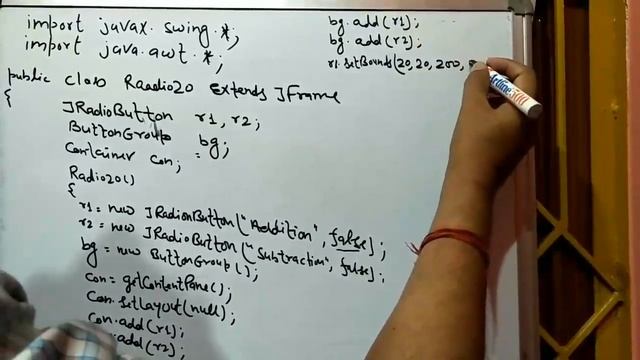 import javax.swing.*;
import java.awt.*;
public class Raadio20 extends JFrame
{
JRadioButton r1, r2;
ButtonGroup bg;
Container con;
Radio20()
{
r1 = new JRadionButton("Addition", false);
r2 = new JRadioButton("Subtraction", false);
bg = new ButtonGroup();
con = getContentPane();
con.setLayout(null);
con.add(r1);
.add(r2);
bg.add(r1);
bg.add(r2);
r1.setBounds(20, 20, 200,